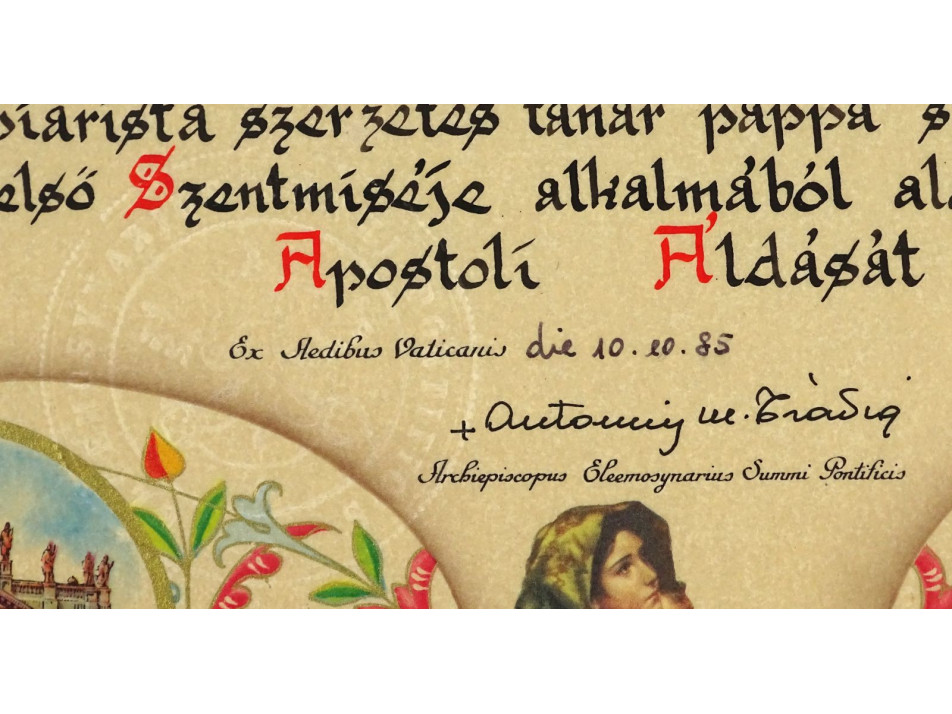 piarista szerzetes tanár pappá s
első Szentmiséje alkalmából al
Apostoli Áldását
Ex Aedibus Vaticanis die 10.10.85
+ Antonius M. Tràvia
Archiepiscopus Eleemosynarius Summi Pontificis